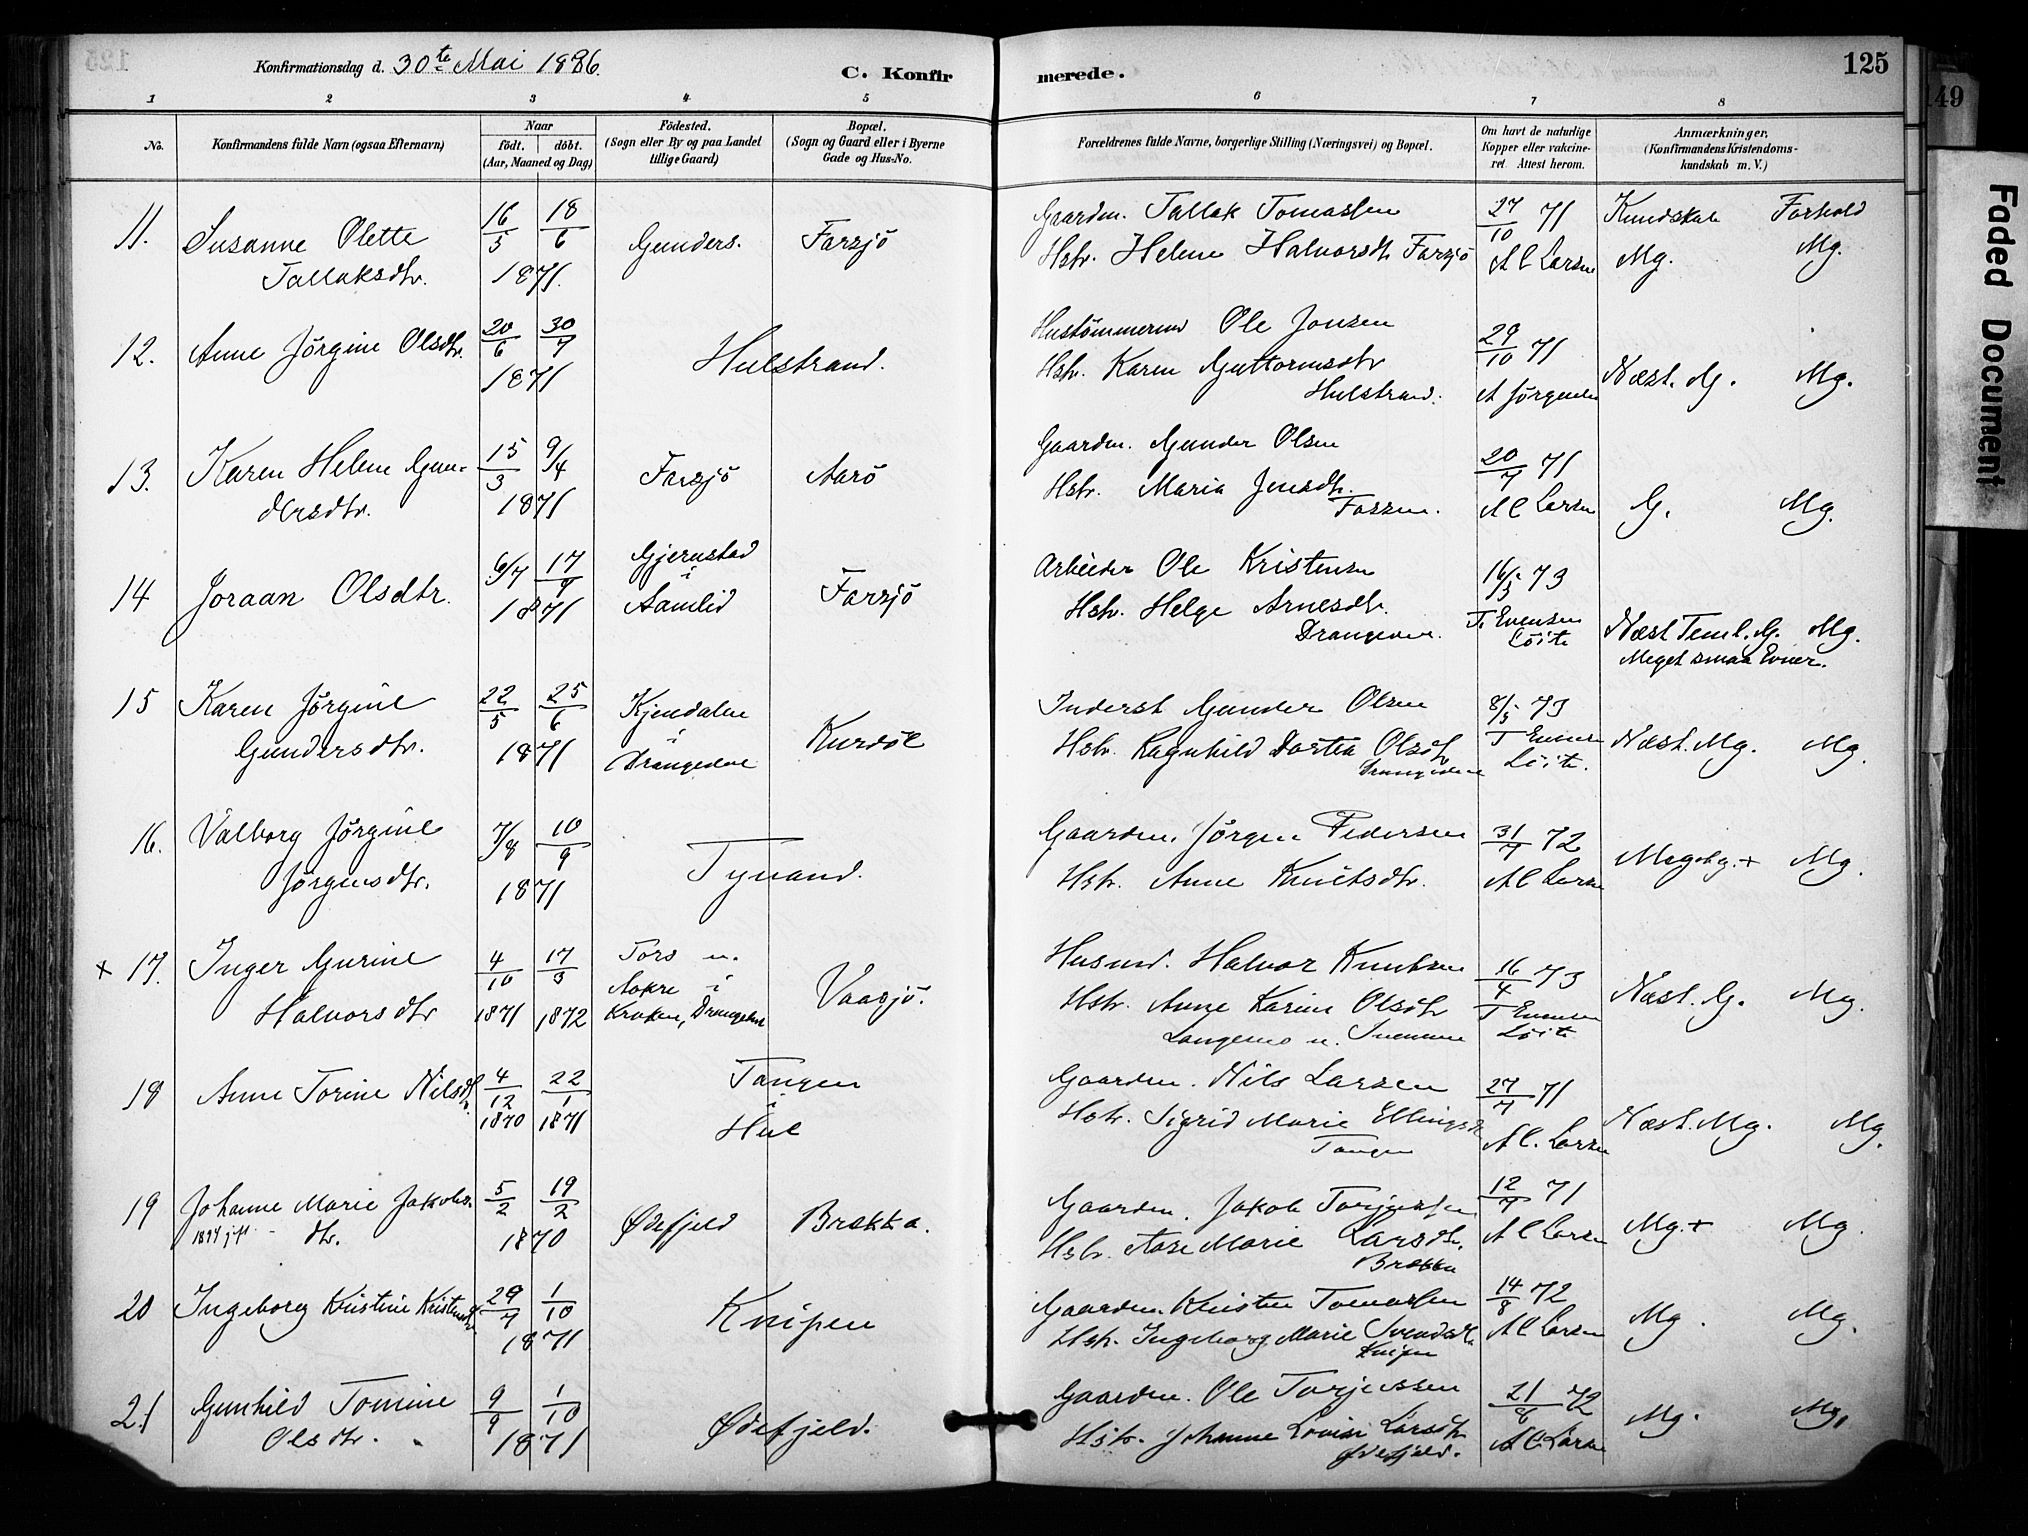 Konfirmationsdag d. 30te Mai 1886.
C. Konfirmerede.
125
149
Faded Document
1 2 3 4 5 6 7 8
No.
Konfirmandens fulde Navn (ogsaa Efternavn)
Naar
født. døbt.
(Aar, Maaned og Dag)
Fødested.
(Sogn eller By og paa Landet
tillige Gaard)
Bopæl.
(Sogn og Gaard eller i Byerne
Gade og Hus-No.
Forældrenes fulde Navne, borgerlige Stilling (Næringsvei) og Bopæl.
Om havt de naturlige
Kopper eller vakcine-
ret. Attest herom.
Anmærkninger.
(Konfirmandens Kristendoms-
kundskab m. V.)
11. Susanne Olette 16/5 18/6 Gunders. Farsjö Gaardm. Tallak Tomassen 27/10 71 Kundskab Forhold
Tallaksdtr. 1871. Hstr. Helene Halvorsdt. Farsjö A C Larsen Mg. Mg.
12. Anne Jörgine Olsdtr. 20/6 30/7 Hulstrand. Ole Jonsen 29/10 71
1871 Hstr. Karen Guttormsdtr Næst. G. Mg.
Hulstrand. A Jörgensen
13. Karen Helene Gun- 15/3 9/4 Farsjö Aarö Gaardm. Gunder Olsen 20/7 71
dersdtr. 1871 Hstr. Maria Jensdtr. A C Larsen G. Mg.
Fossen.
14 Joraan Olsdtr. 6/7 17/9 Gjernstad Farsjö Arbeider Ole Kristensen 16/5 73
1871 i Hstr. Helge Arnesdtr. T. Evensen
Aamlid Drangedal. Löite Næst Teml. G. Mg.
Meget smaa Evner.
15 Karen Jörgine 22/5 25/6 Kjendalen Kurdöl Inderst Gunder Olsen 8/5 73
Gundersdtr. 1871 i Hstr. Ragnhild Dortea Olsdt T Evensen Næst. Mg. Mg.
Drangedal Drangedal Löite.
16. Valborg Jörgine 7/8 10/9 Tyvand. Gaardm. Jörgen Pedersen 31/7 72
Jörgensdtr. 1871 Hstr. Anne Knutsdtr. A C Larsen Meget g. + Mg.
+ 17. Inger Gurine 4/10 17/3 Tors u. Vaasjö. Husmd. Halvor Knutsen 16/4 73
Halvorsdtr 1871 1872 Aakre i Hstr. Anne Karine Olsdt T Evensen Næst. G. Mg.
Kroken, Drangedal Langemo u. Löite
18 Anne Torine Nilsdtr. 4/12 22/1 Tangen Gaardm. Nils Larsen 27/7 71
1870 1871 i Hstr. Sigrid Marie Ellingsdt Næst. Mg. Mg.
Hul Tangen A C. Larsen
19 Johanne Marie Jakobs- 5/2 19/2 Ødefjeld Brækka. Gaardm. Jakob Torjussen 12/7 71
1894 gift - dtr. 1870 Hstr. Aase Marie Larsdtr. A C Larsen Mg. + Mg.
Brækka
20 Ingeborg Kristine Kristensdtr 29/7 1/10 Knipen Gaardm. Kristen Tomassen 14/8 72
1871 Hstr. Ingeborg Marie Svendsdt. A C Larsen Mg. Mg.
Knipen
21 Gunhild Tomine 9/9 1/10 Ødefjeld. Gaardm. Ole Torjussen 21/8 72
Olsdtr. 1871 Hstr. Johanne Lovise Larsdtr. A C. Larsen Mg. Mg.
Ødefjeld.